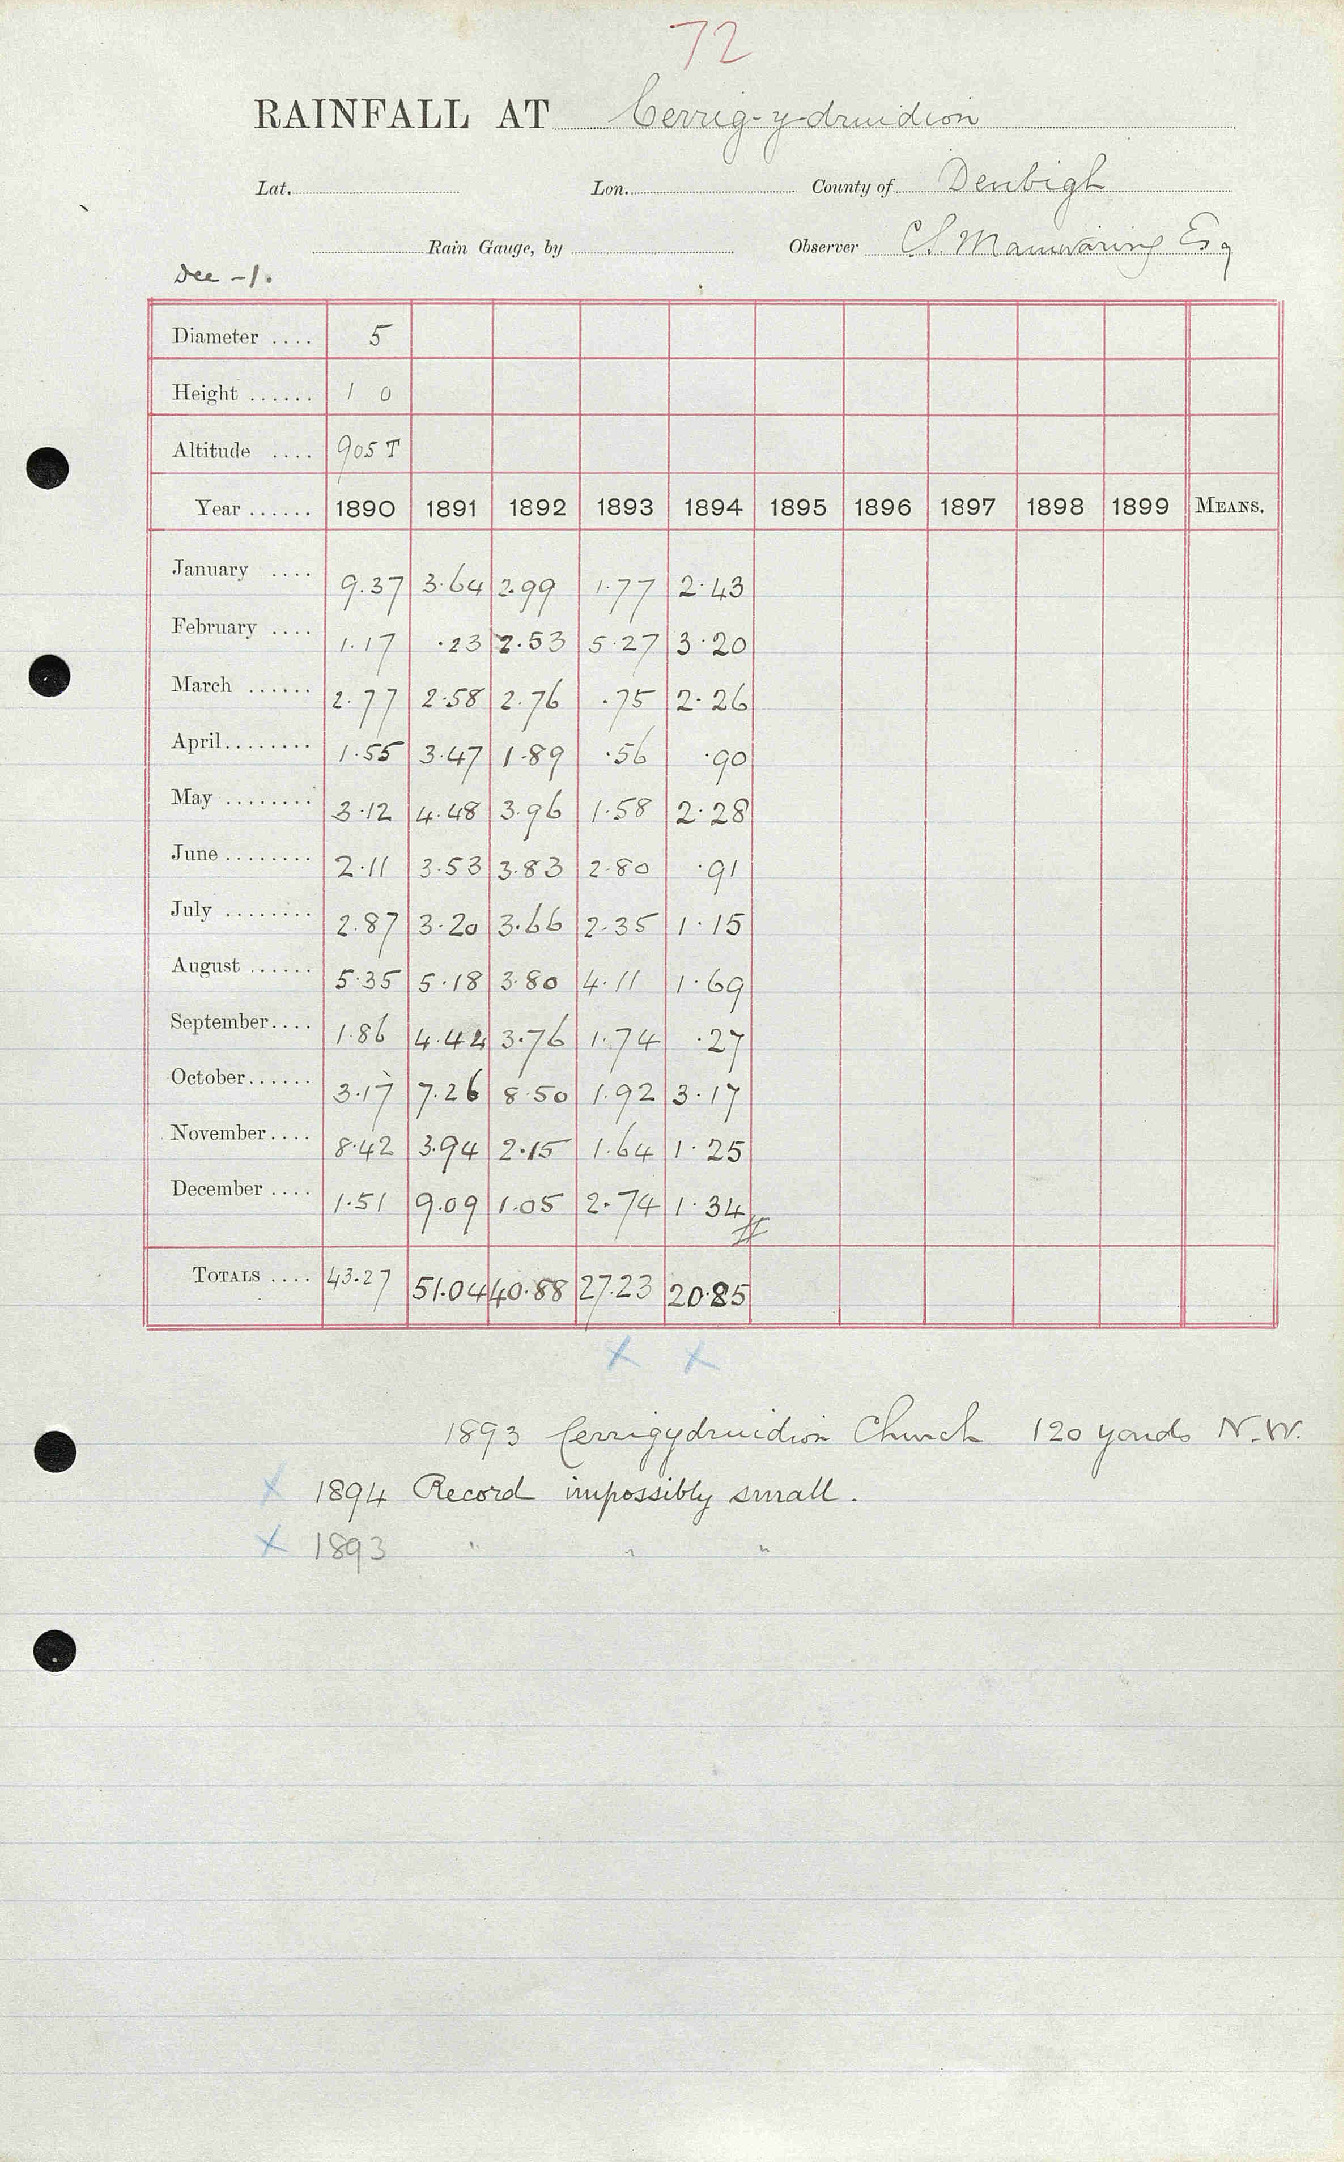 72
RAINFALL AT Cerrig-y-druidion
Lat. Lon. County of Denbigh
Rain Gauge, by Observer C.S. Mainwaring Esq
Dec -1.
Diameter .... 5
Height ...... 1 0
Altitude .... 905 T
Year ...... 1890 1891 1892 1893 1894 1895 1896 1897 1898 1899 MEANS.
January .... 9.37 3.64 2.99 1.77 2.43
February .... 1.17 .23 2.53 5.27 3.20
March ...... 2.77 2.58 2.76 .75 2.26
April........ 1.55 3.47 1.89 .56 .90
May ........ 3.12 4.48 3.96 1.58 2.28
June ........ 2.11 3.53 3.83 2.80 .91
July ........ 2.87 3.20 3.66 2.35 1.15
August ...... 5.35 5.18 3.80 4.11 1.69
September.... 1.86 4.44 3.76 1.74 .27
October...... 3.17 7.26 8.50 1.92 3.17
November.... 8.42 3.94 2.15 1.64 1.25
December .... 1.51 9.09 1.05 2.74 1.34
TOTALS .... 43.27 51.04 40.88 27.23 20.85
x x
1893 Cerrigydruidion Church 120 yards N.W.
x 1894 Record impossibly small.
x 1893 " " "